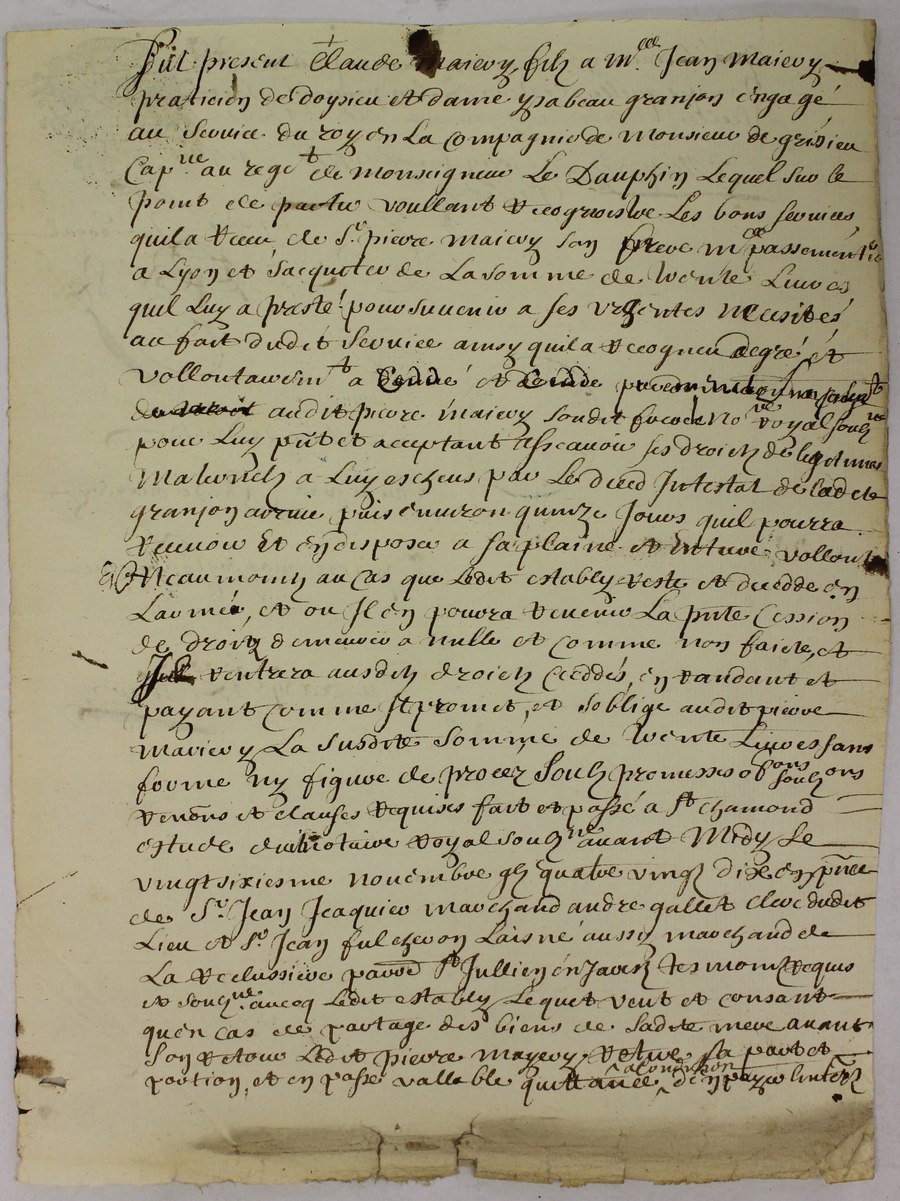 fut present Claude Maiery filz a me Jean Maiery
praticien de doysieu et dame ysabeau granjon engagé
au service du roy en La compagnie de Monsieur de grisieu
Capne au regt de monseigneur Le Dauphin Lequel sur le
point de partir voullant recognoistre Les bons services
quil a receu de Sr pierre maiery son frere me passementier
a Lyon et sacquiter de La somme de trente Livres
quil Luy a presté pour survenir a ses urgentes necesités
au fait dudit service ainsy quil a recogneu de gré et
vollontairemt a ceddé et cedde
audit pierre maiery sondit frere nore royal soubzne
pour Luy pnt et acceptant asscavoir ses droictz de legitimes
Maternelz a Luy escheus par Le deced Intestat de Ladcte
granjon arrivé puis environ quinze Jours quil pourra
recevoir et en disposer a sa plaine et entiere vollonté
Neaumointz au cas que Ledit estably reste et decedde en
Larmée, et ou Il en pourra revenir La pnte Cession
de droitz demeurera nulle et comme non faicte, et
rentrera ausditz droictz ceddés, en randant et
payant comme Il promet, et soblige audit pierre
Mariery La susdite somme de trente Livres sans
forme ny figure de procer Soubz promesses obons soubzons
renons et clauses requises fait et passé a St chamond
estude du notaire royal soubzne avant Midy Le
vingt sixiesme novembre gbz quatre vingtz dix en pnce
de Sr Jean Jeaquier marchand andre gallet clerc dudit
Lieu et Sr Jean fulcheron Laisné aussy marchand de
La reclussiere parroe St Jullien en Jarestz tesmointz requis
et soubzne avecq Ledit estably Lequel veut et consant
quen cas de partage des biens de sadite mere avant
son retour Ledit pierre mayery retire sa part et
portion, et en passe vallable quittance, a condition den payer linterz